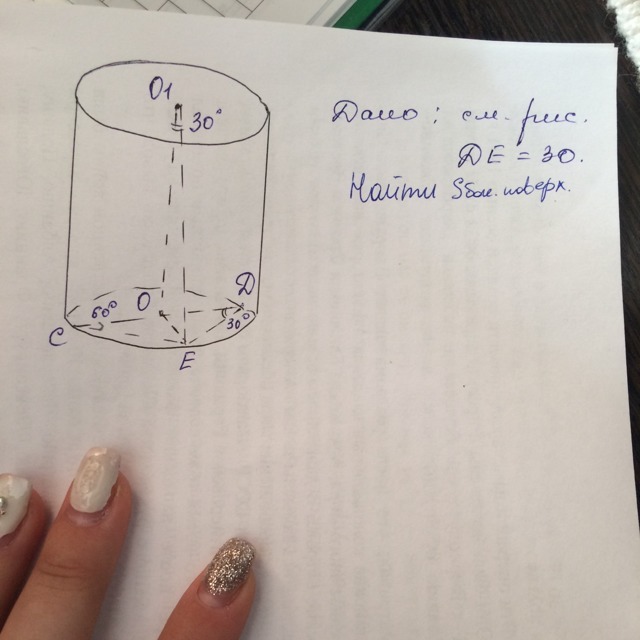 O1
30°
Дано: см. рис.
DE = 30.
Найти Sбок. поверх.
60°
O
D
30°
C
E